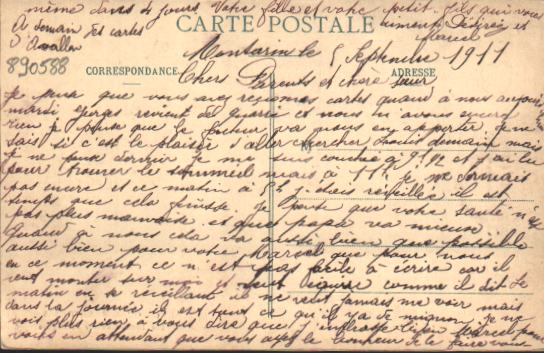 même dans 4 jours Votre fille et votre petit fils qui vous
aiment Désirée et
Marcel
A demain les cartes
d'Avallon
CARTE POSTALE
890588
Montarin le 5 Septembre 1911
CORRESPONDANCE
ADRESSE
Chers Parents et chère sœur
Je pense que vous avez reçu mes cartes quand à nous aujourd
mardi revient de guerre et nous n'avons encore
rien je pense que le facteur va nous en apporter je ne
sais si c'est le plaisir d'aller chercher demain mais
je ne peux dormir je me suis couchée à 9 et j'ai lu
pour trouver le sommeil mais à 11 h je ne dormais
pas encore et ce matin à 5 h j'étais réveillée il est
temps que cela finisse je pense que votre santé n'est
pas plus mauvaise et que papa va mieux
Quand à nous cela va aussi bien que possible
aussi bien pour votre Marcel que pour nous
en ce moment ce n'est pas facile à écrire car il
veut monter sur moi et comme il dit Le
matin en se réveillant il ne veut jamais me voir mais
dans la journée il est tout ce qu'il y a de mignon je ne
vois plus rien à vous dire que j'embrasse bien Marcel pour
vous en attendant que vous ayez le bonheur de le faire vous